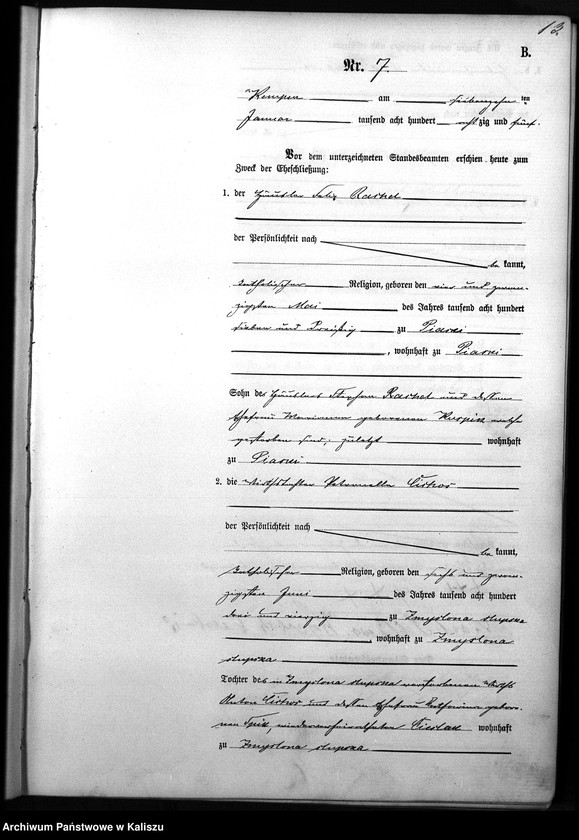 13.
B.
Nr. 7.
Kempen am siebenzehn ten
Januar tausend acht hundert achtzig und fünf.
Vor dem unterzeichneten Standesbeamten erschien heute zum
Zweck der Eheschließung:
1. der Häusler Felix
der Persönlichkeit nach
be kannt,
katholischer Religion, geboren den vier und zwan-
zigsten Mai des Jahres tausend acht hundert
sieben und dreißig zu Piaski
, wohnhaft zu Piaski
Sohn des Häuslers Stephan und dessen
Ehefrau Marianna geborenen welche
gestorben sind, zuletzt wohnhaft
zu Piaski
2. die Wirthstochter Petronella
der Persönlichkeit nach
be kannt,
katholischer Religion, geboren den sechs und zwan-
zigsten Juni des Jahres tausend acht hundert
drei und vierzig zu Zmyslona slupska
, wohnhaft zu Zmyslona
slupska
Tochter des in Zmyslona slupska verstorbenen Wirths
Anton und dessen Ehefrau gebore-
nen wiederverheiratheten wohnhaft
zu Zmyslona slupska
Archiwum Państwowe w Kaliszu